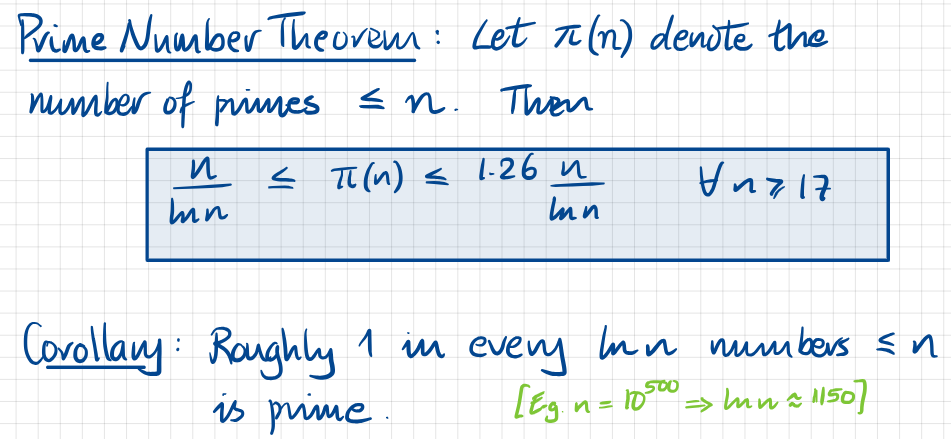 Prime Number Theorem: Let π(n) denote the
number of primes ≤ n. Then
n/ln n ≤ π(n) ≤ 1.26 n/ln n ∀ n ≥ 17
Corollary: Roughly 1 in every ln n numbers ≤ n
is prime. [Eg. n = 10^500 ⇒ ln n ≈ 1150]